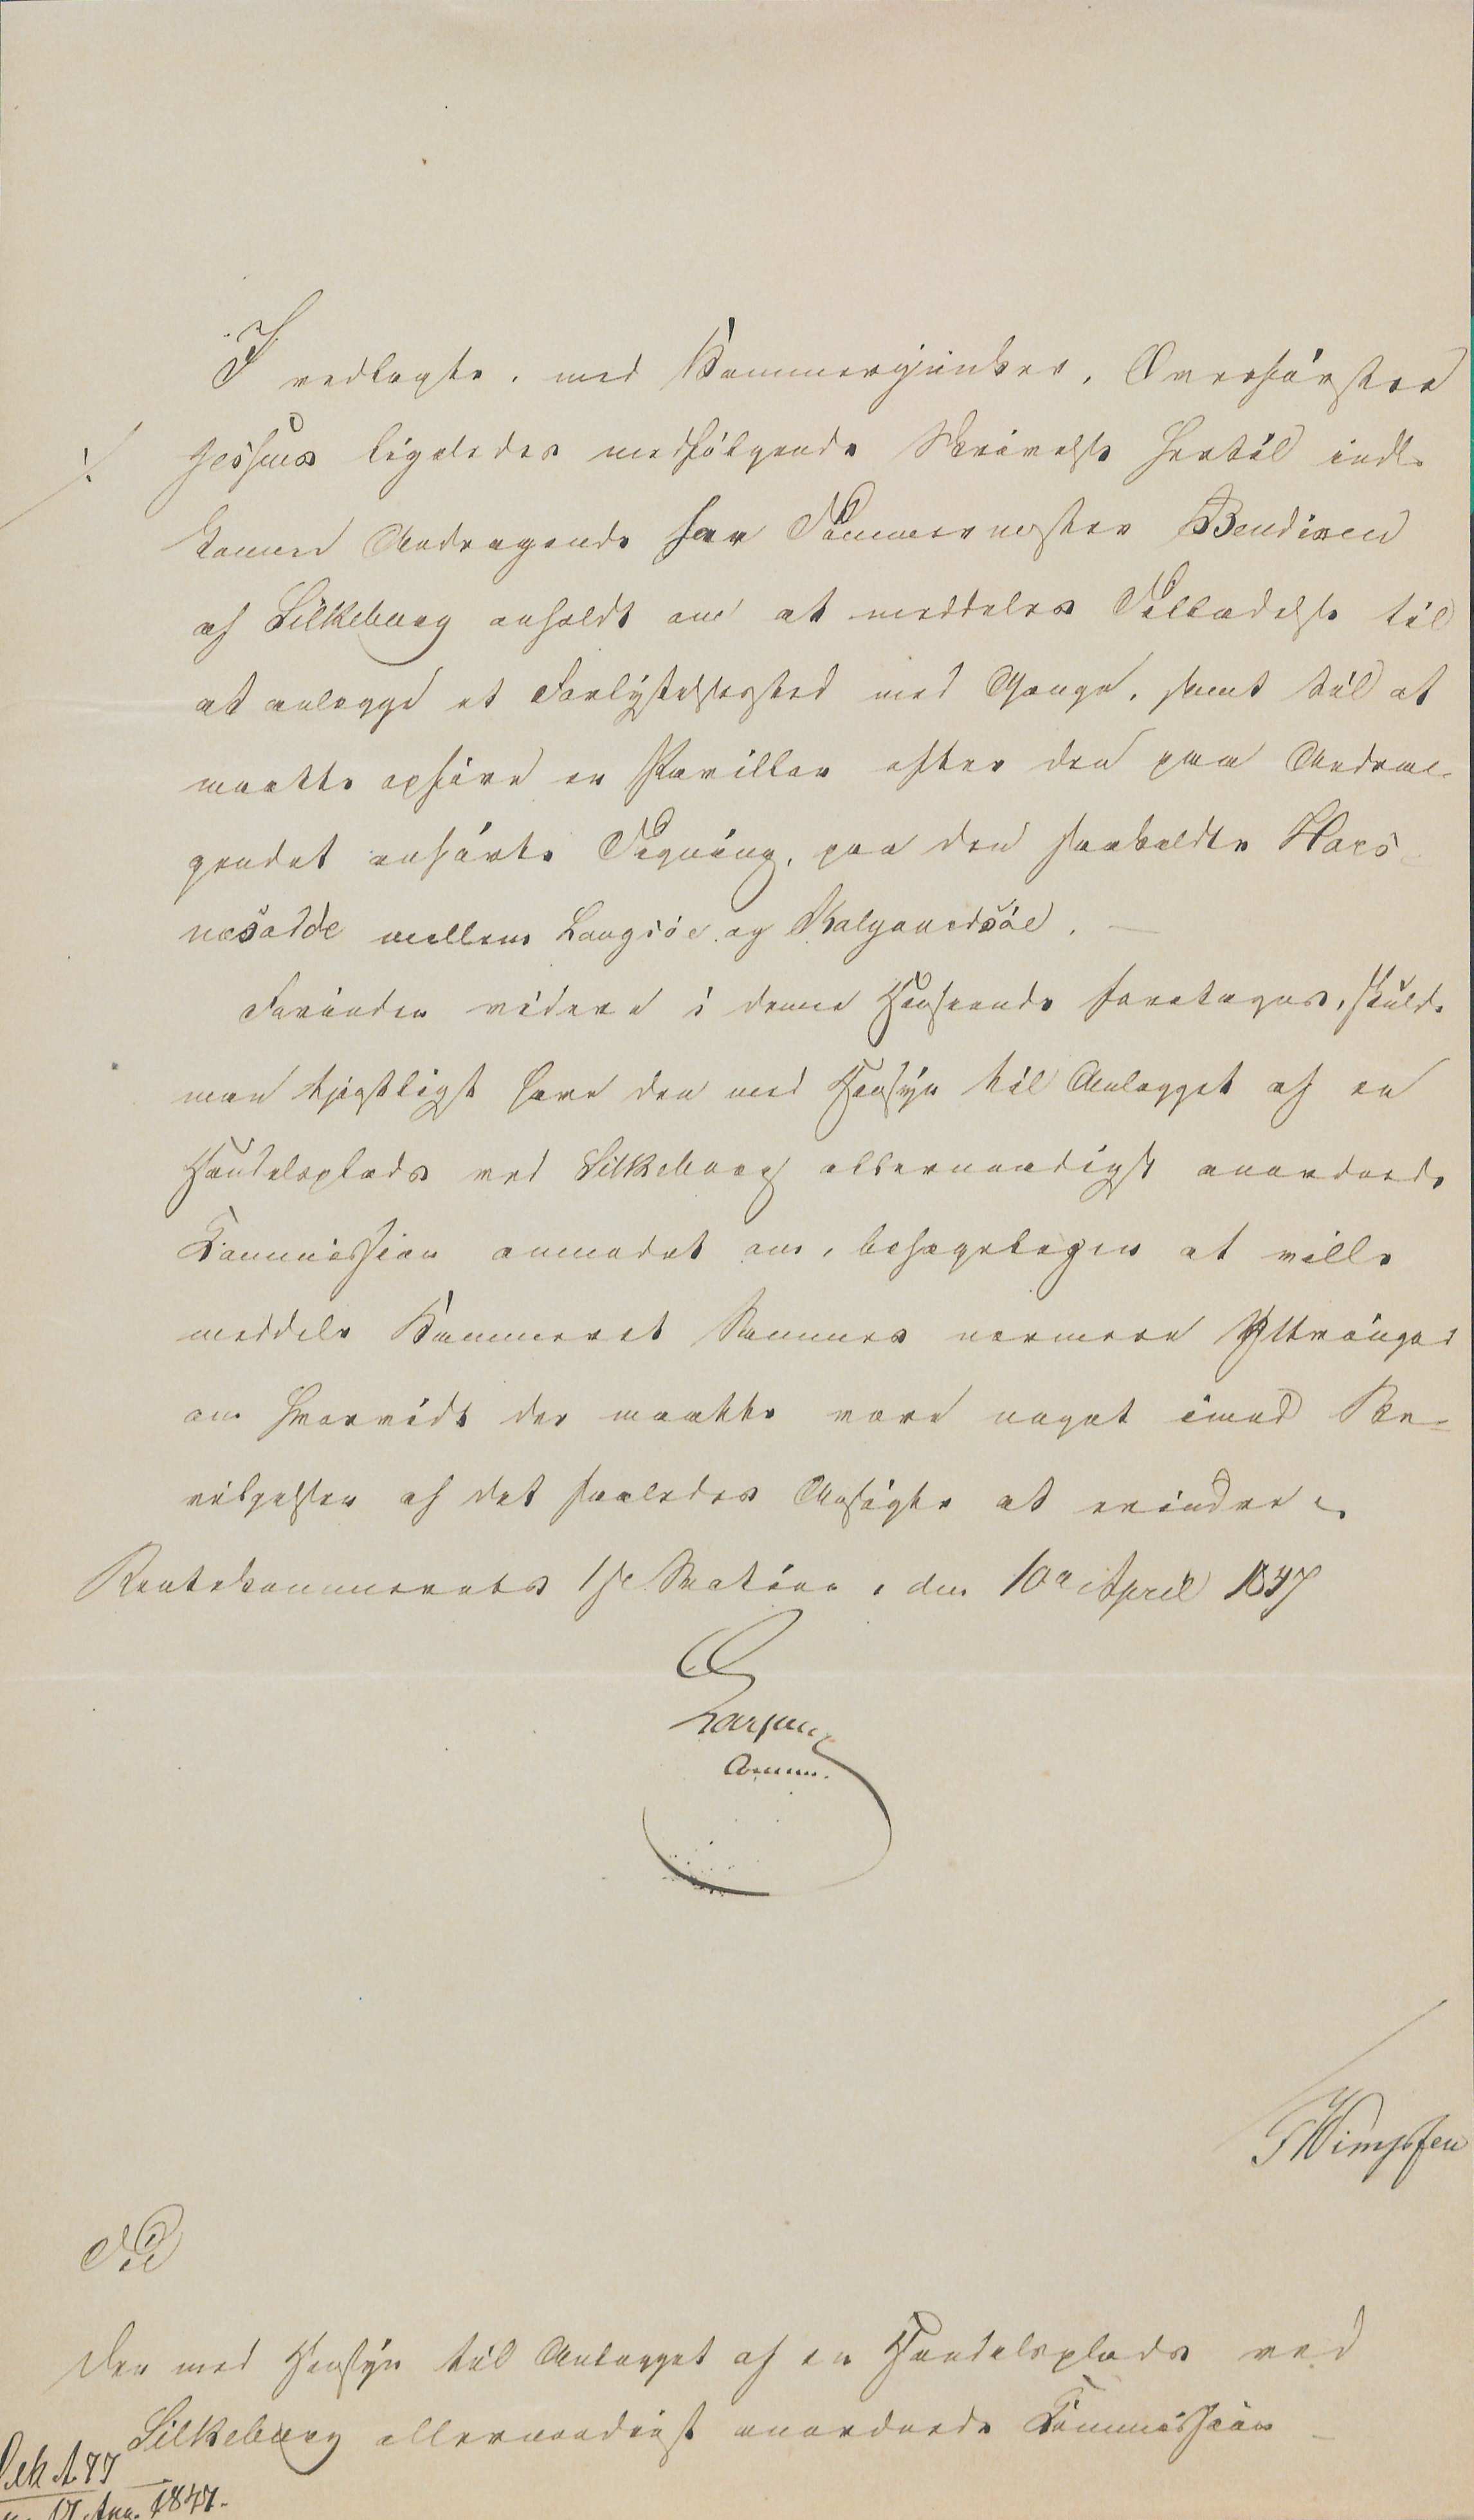 I vedlagte, med Kammerjunker, Overførster
./. Jessens ligeledes medfølgende Skrivelse hertil ind-
komne Andragende har Tømmermester Bendixen
af Silkeborg anholdt om at meddeles Tilladelse til
at anlægge et Forlystelsessted med Gange, samt til at
maatte opføre en Pavillon efter den paa Andra-
gendet anførte Tegning, paa den saakaldte
næsodde mellem Langsöe og Kalgaardsöe. –
Forinden videre i denne Henseende foretages, skulde
man tjenstligst have den med Hensyn til Anlægget af en
Handelsplads ved Silkeborg allernaadigst anordnede
Kommission anmodet om, behageligen at ville
meddele Kammeret Sammes nærmere Yttringer
om hvorvidt der maatte være noget imod Be-
vilgelsen af det saaledes Ansøgte at erindre.
Rentekammerets 1ste Sektion, den 10de April 1847
Larsen
Comm.
Wimpffen
Til
Den med Hensyn til Anlægget af en Handelsplads ved
Silkeborg allernaadigst anordnede Kommission
17 1847.